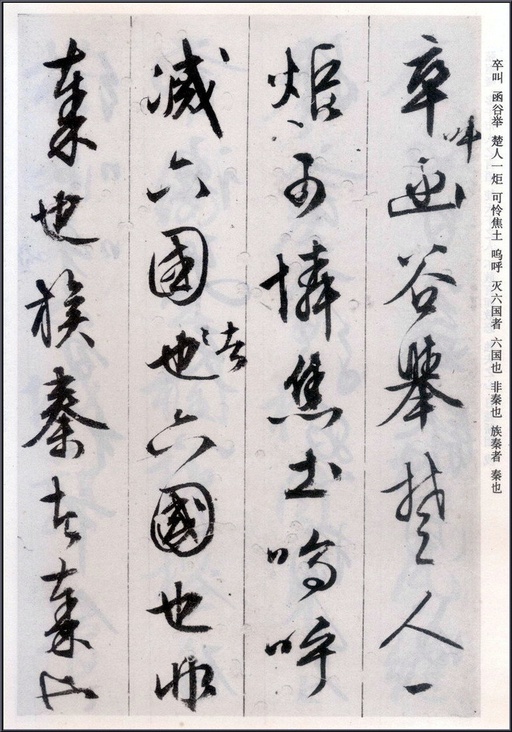 卒叫 函谷举 楚人一炬 可怜焦土 呜呼 灭六国者 六国也 非秦也 族秦者 秦也
卒叫函谷舉楚人一
炬可憐焦土嗚呼
滅六國也者六國也非
秦也族秦者秦也